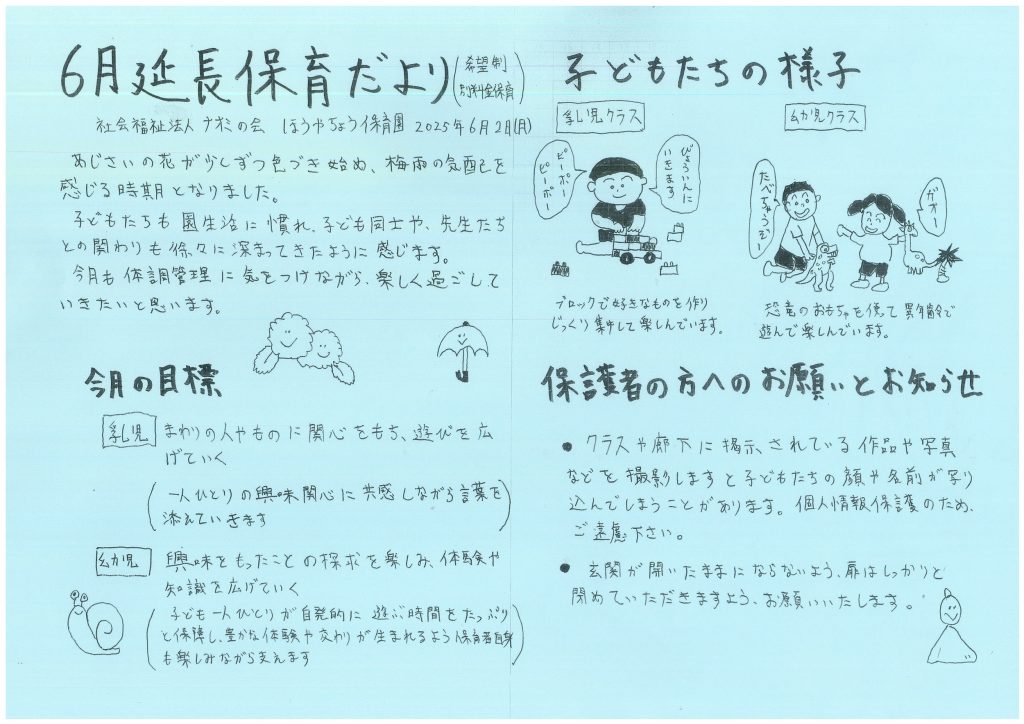 6月延長保育だより(希望制
別料金保育)
社会福祉法人 ナオミの会 ほうやちょう保育園 2025年6月2日(月)
あじさいの花が少しずつ色づき始め、梅雨の気配を
感じる時期となりました。
子どもたちも園生活に慣れ、子ども同士や、先生たち
との関わりも徐々に深まってきたように感じます。
今月も体調管理に気をつけながら、楽しく過ごして
いきたいと思います。
今月の目標
乳児 まわりの人やものに関心をもち、遊びを広
げていく
(一人ひとりの興味関心に共感しながら言葉を
添えていきます)
幼児 興味をもったことの探求を楽しみ、体験や
知識を広げていく
(子ども一人ひとりが自発的に遊ぶ時間をたっぷり
と保障し、豊かな体験や交わりが生まれるよう保育者自身
も楽しみながら支えます)
子どもたちの様子
乳児クラス
ピーポー
ピーポー
びょういんに
いきます
ブロックで好きなものを作り
じっくり集中して楽しんでいます。
幼児クラス
たべちゃうぞー
ガオー
恐竜のおもちゃを使って異年齢で
遊んで楽しんでいます。
保護者の方へのお願いとお知らせ
● クラスや廊下に掲示されている作品や写真
などを撮影しますと子どもたちの顔や名前が写り
込んでしまうことがあります。個人情報保護のため、
ご遠慮下さい。
● 玄関が開いたままにならないよう、扉はしっかりと
閉めていただきますよう、お願いいたします。